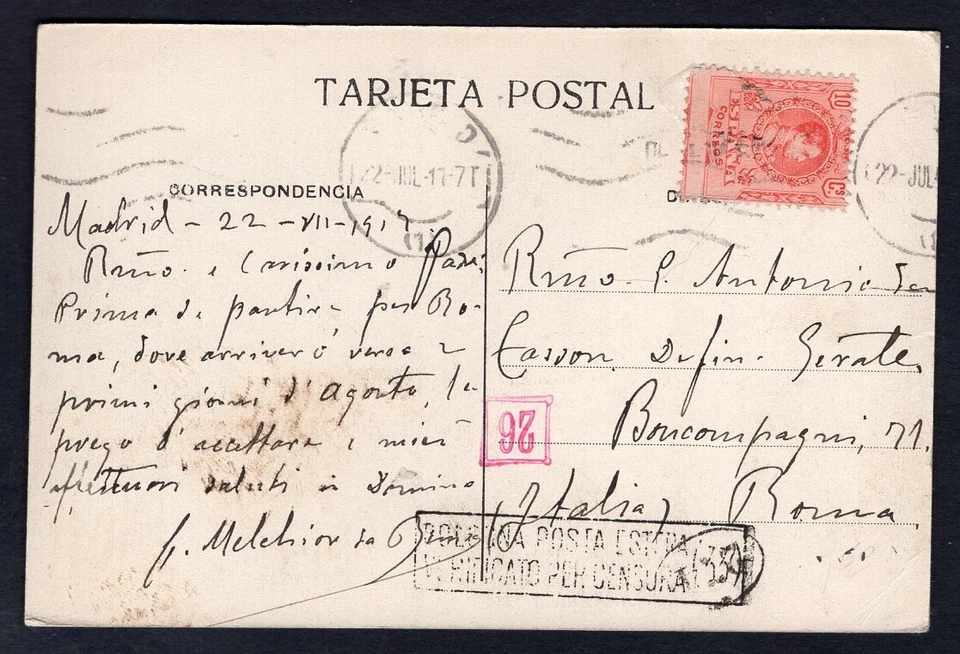 TARJETA POSTAL
CORRESPONDENCIA
22-JUL-17-7T
10 Cs
CORREOS
22-JUL-
(1)
Madrid - 22 - VII - 1917
Rmo. e Carissimo Padre
Prima di partire per Ro-
ma, dove arriverò verso i
primi giorni d'Agosto, la
prego d'accettare i miei
affettuosi saluti in Domino
f. Melchior da
Rmo P. Antonio da
Casson Defin. Gerale.
Boncompagni, 71.
(Italia) Roma
26
BOLOGNA POSTA ESTERA
VERIFICATO PER CENSURA